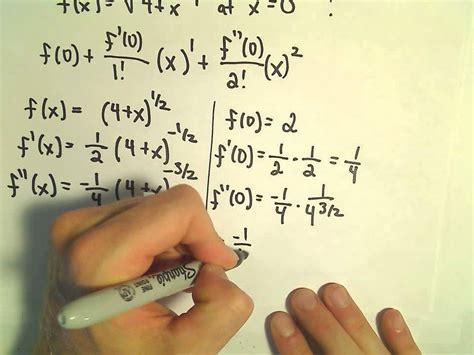 f(x) = √4+x at x=0
f(0) + f'(0)/1! (x)^1 + f''(0)/2! (x)^2
f(x) = (4+x)^1/2
f'(x) = 1/2 (4+x)^-1/2
f''(x) = -1/4 (4+x)^-3/2
f(0) = 2
f'(0) = 1/2 · 1/2 = 1/4
f''(0) = -1/4 · 1/4^3/2
-1/
Sharpie
FINE POINT